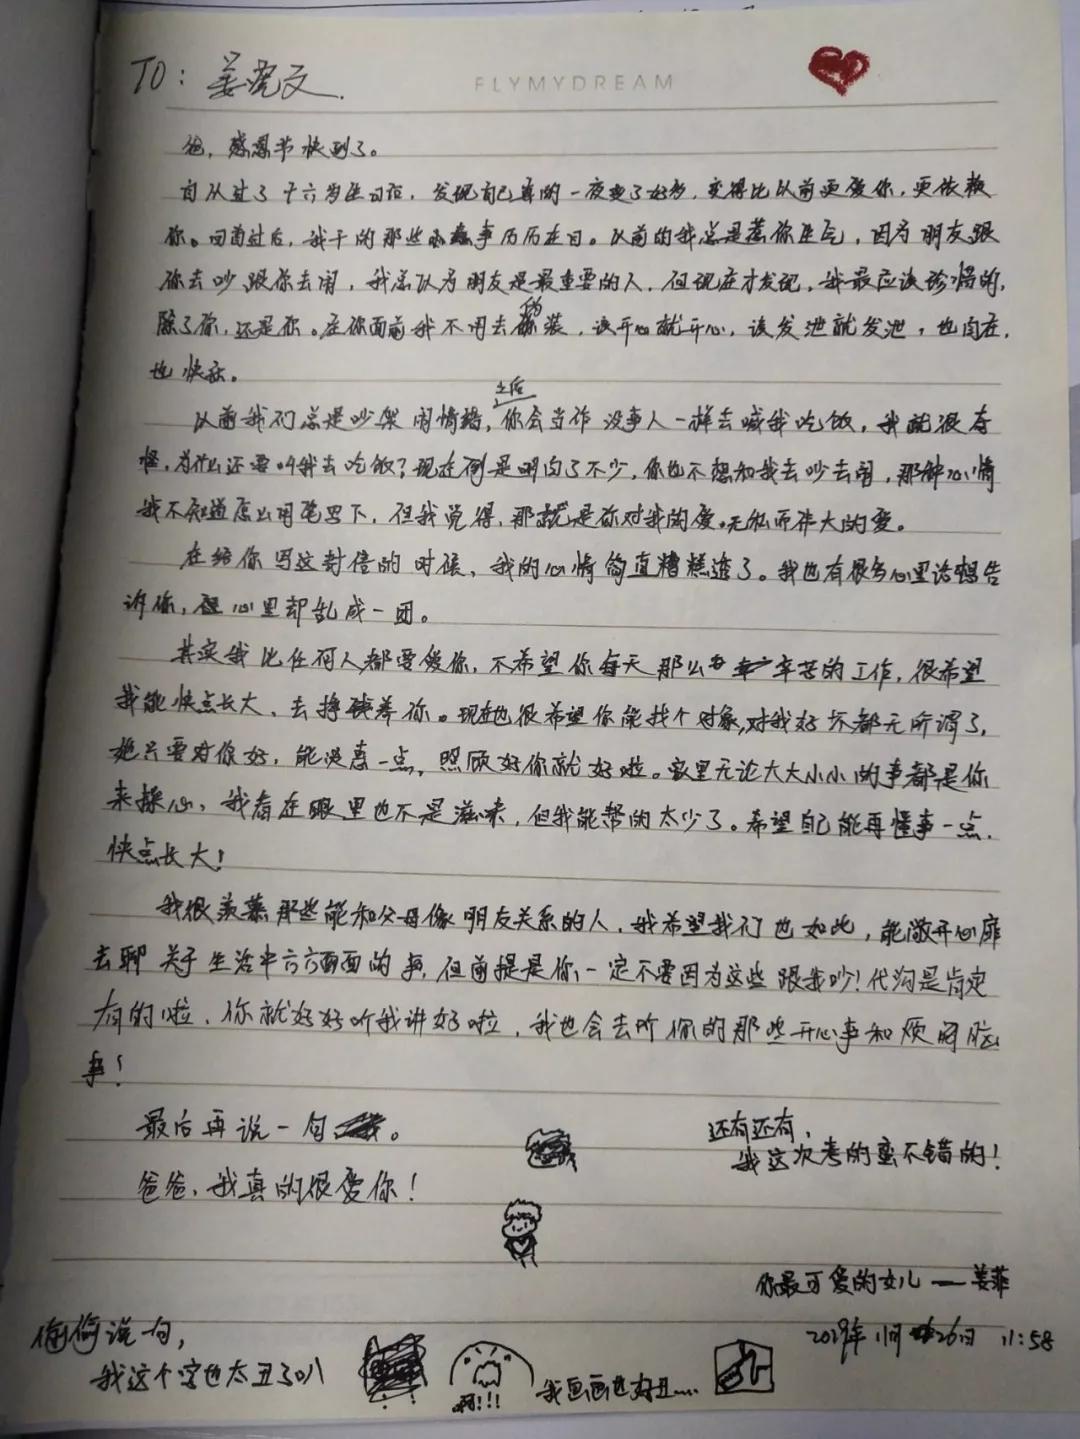 TO：姜虎文.
FLYMYDREAM
爸，感恩节快到了。
自从过了十六岁生日后，发现自己真的一夜变了好多，变得比以前更爱你，更依赖
你。回首过后，我干的那些事历历在目。以前的我总是惹你生气，因为朋友跟
你去吵跟你去闹，我总认为朋友是最重要的人，但现在才发现，我最应该珍惜的，
除了你，还是你。在你面前我不用去伪装，该开心就开心，该发泄就发泄，也自在，
也快乐。
以前我们总是吵架闹情绪，之后你会当作没事人一样去喊我吃饭，我就很奇
怪，为什么还要叫我去吃饭？现在倒是明白了不少，你也不想和我去吵去闹，那种心情
我不知道怎么用笔写下，但我觉得，那就是你对我的爱，无私而伟大的爱。
在给你写这封信的时候，我的心情简直糟糕透了。我也有很多心里话想告
诉你，但心里却乱成一团。
其实我比任何人都要爱你，不希望你每天那么辛苦的工作，很希望
我能快点长大，去挣钱养你。现在也很希望你能找个对象，对我好坏都无所谓了，
她只要对你好，能贤惠一点，照顾好你就好啦。家里无论大大小小的事都是你
来操心，我看在眼里也不是滋味，但我能帮的太少了。希望自己能再懂事一点，
快点长大！
我很羡慕那些能和父母像朋友关系的人，我希望我们也如此，能敞开心扉
去聊关于生活中方方面面的事，但前提是你一定不要因为这些跟我吵！代沟是肯定
有的啦，你就好好听我讲好啦，我也会去听你的那些开心事和烦恼
事！
最后再说一句。
还有还有，
我这次考的蛮不错的！
爸爸，我真的很爱你！
你最可爱的女儿——姜菲
2019年11月26日 11:58
偷偷说句，
我这个字也太丑了叭
啊!!!
我画画也好丑....